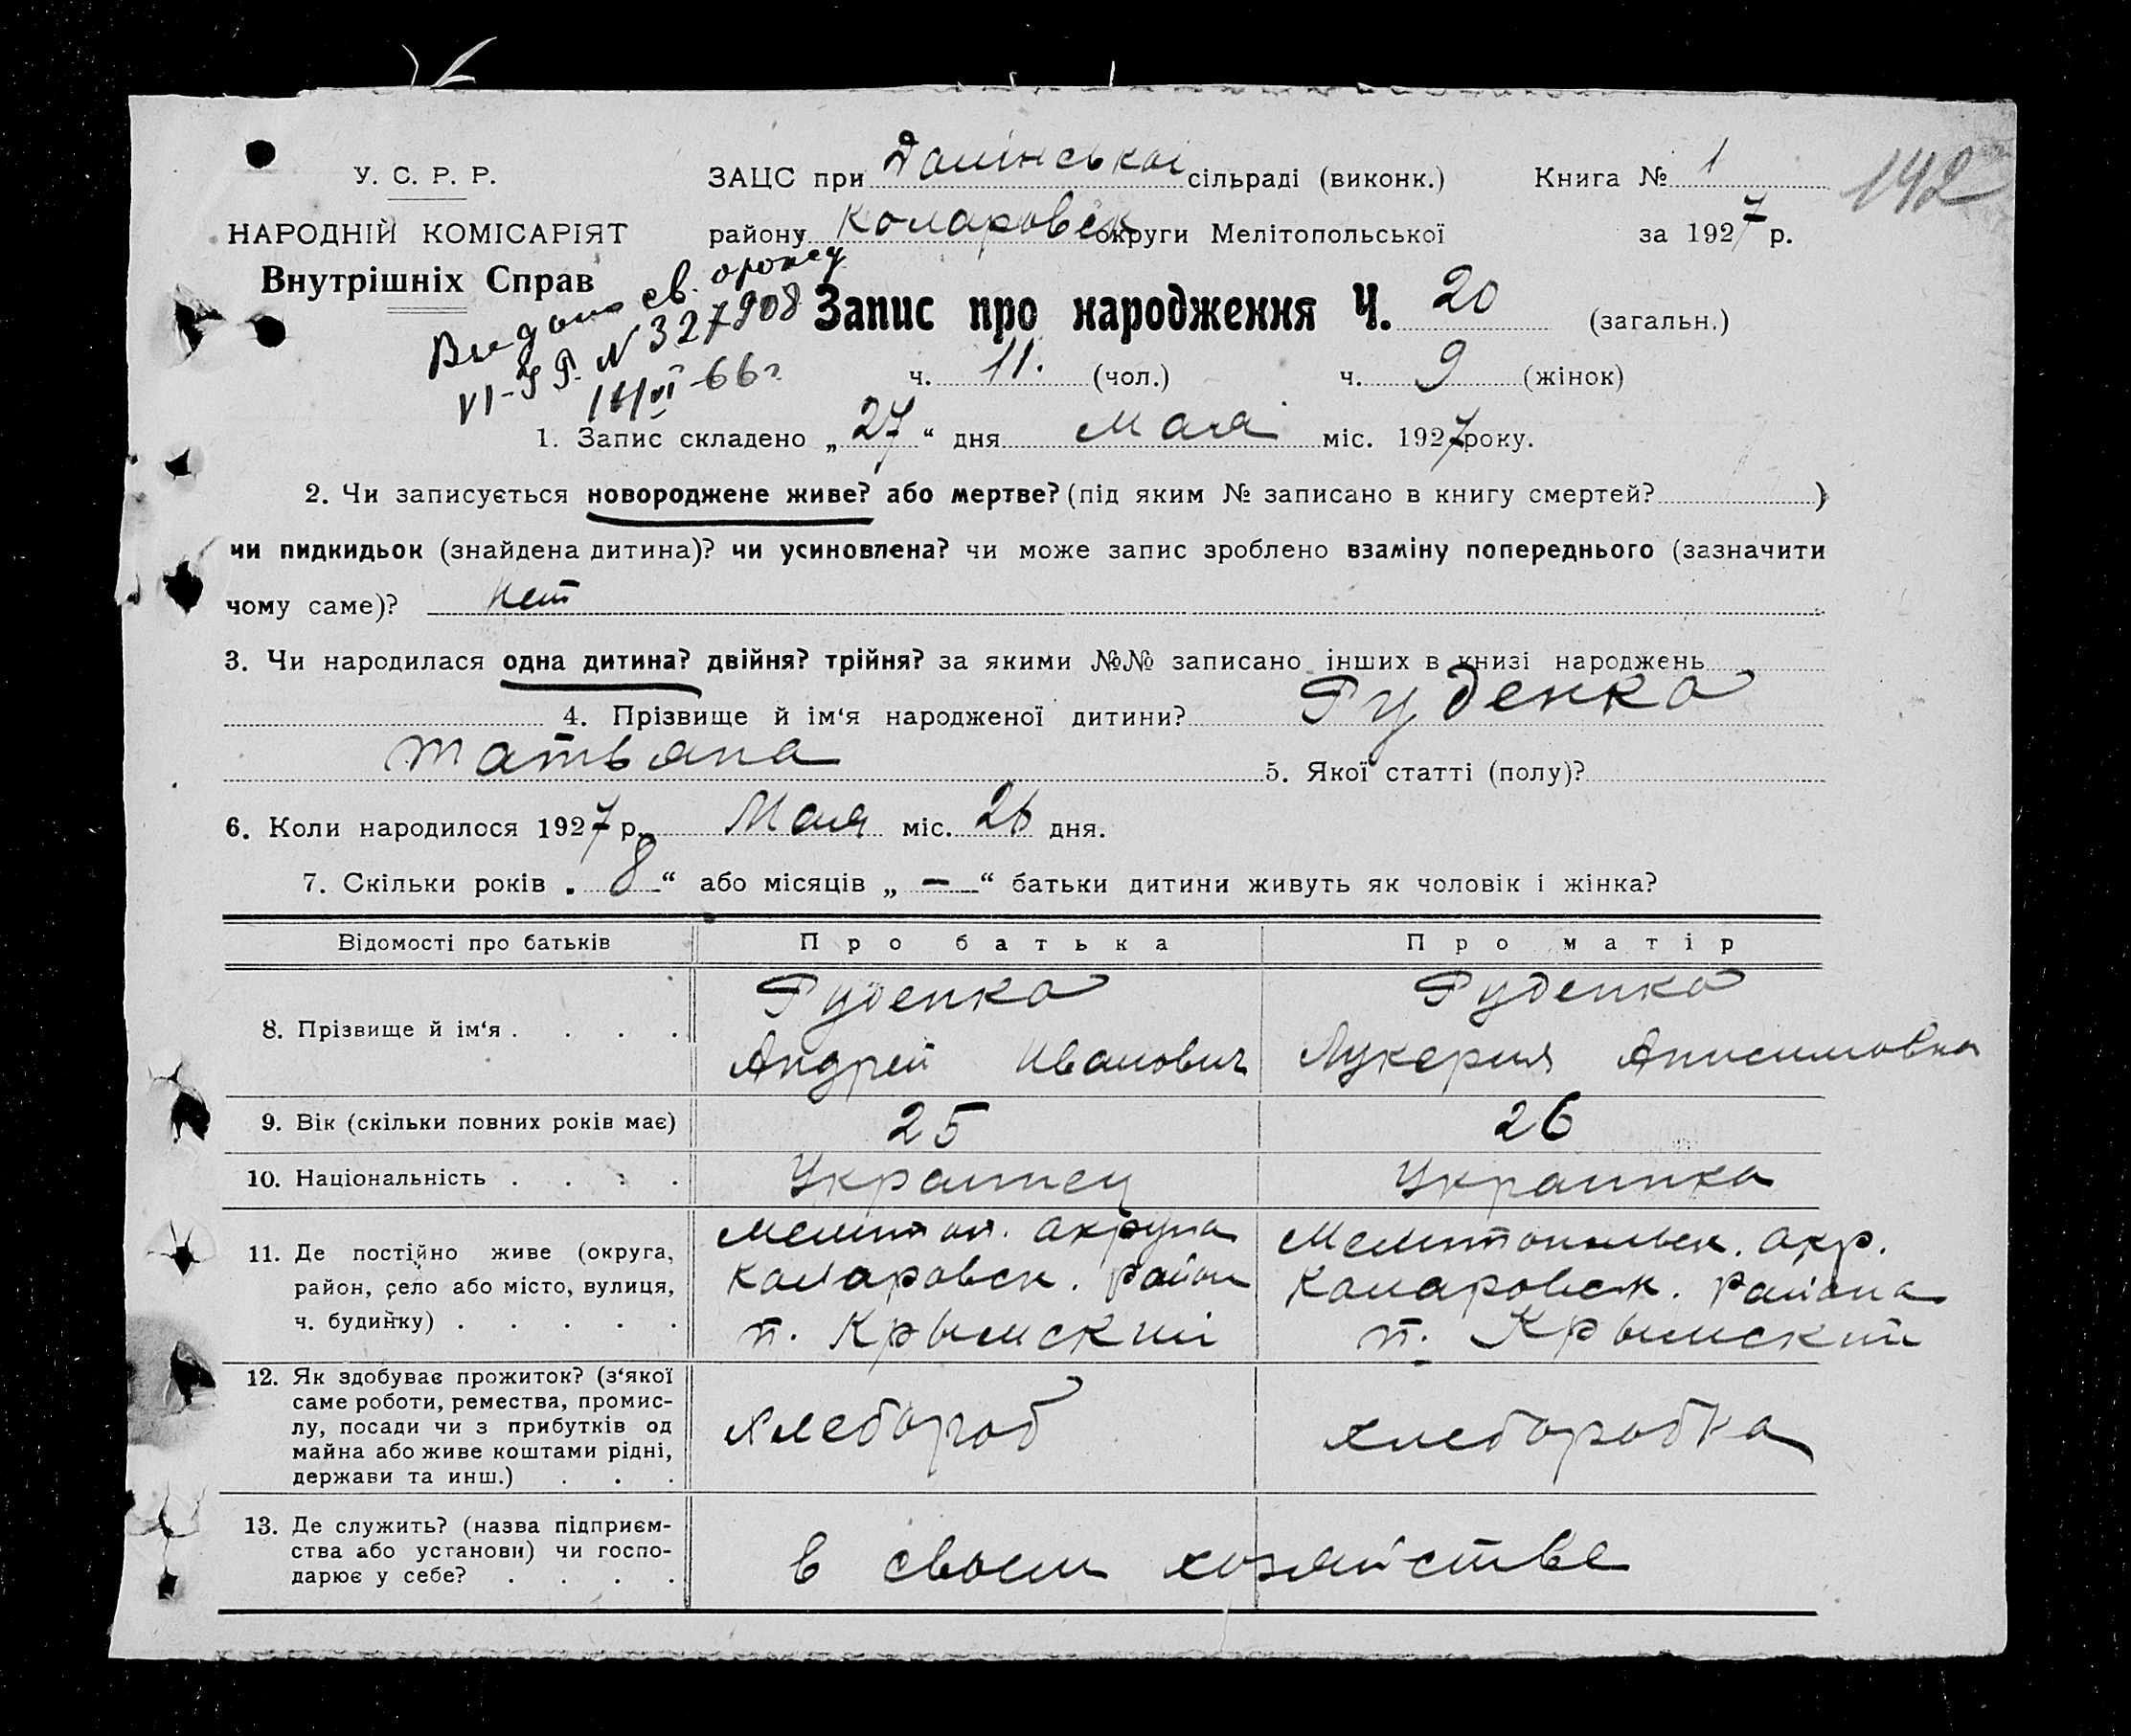 142
У. С. Р. Р.
НАРОДНІЙ КОМІСАРІЯТ
Внутрішніх Справ
ЗАЦС при Далінськоі сільраді (виконк.) Книга № 1
району Коларовск округи Мелітопольської за 1927 р.
Видано св. о рожд
VI-ЯР N 327908
14/VI-66 г
Запис про народження Ч. 20 (загальн.)
ч. 11. (чол.) ч. 9 (жінок)
1. Запис складено „27“ дня Мая міс. 1927 року.
2. Чи записується новороджене живе? або мертве? (під яким № записано в книгу смертей? )
чи пидкидьок (знайдена дитина)? чи усиновлена? чи може запис зроблено взаміну попереднього (зазначити
чому саме)? Нет
3. Чи народилася одна дитина? двійня? трійня? за якими №№ записано інших в книзі народжень
4. Прізвище й ім‘я народженої дитини? Руденко
Татьяна 5. Якої статті (полу)?
6. Коли народилося 1927 р. Мая міс. 26 дня.
7. Скільки років „8“ або місяців „—“ батьки дитини живуть як чоловік і жінка?
Відомості про батьків Про батька Про матір
8. Прізвище й ім‘я . . . . Руденко Руденко
Андрей Иванович Лукерия Анисимовна
9. Вік (скільки повних років має) 25 26
10. Національність . . . . Украинец Украинка
11. Де постійно живе (округа,
район, село або місто, вулиця,
ч. будинку) . . . . .
Мелитоп. округа
Коларовск. район
п. Крымский
Мелитопольск. окр.
Коларовск. района
п. Крымский
12. Як здобуває прожиток? (з‘якої
саме роботи, ремества, промис-
лу, посади чи з прибутків од
майна або живе коштами рідні,
держави та инш.) . . .
хлебороб хлеборобка
13. Де служить? (назва підприєм-
ства або установи) чи госпо-
дарює у себе? . . . .
в своем хозяйстве